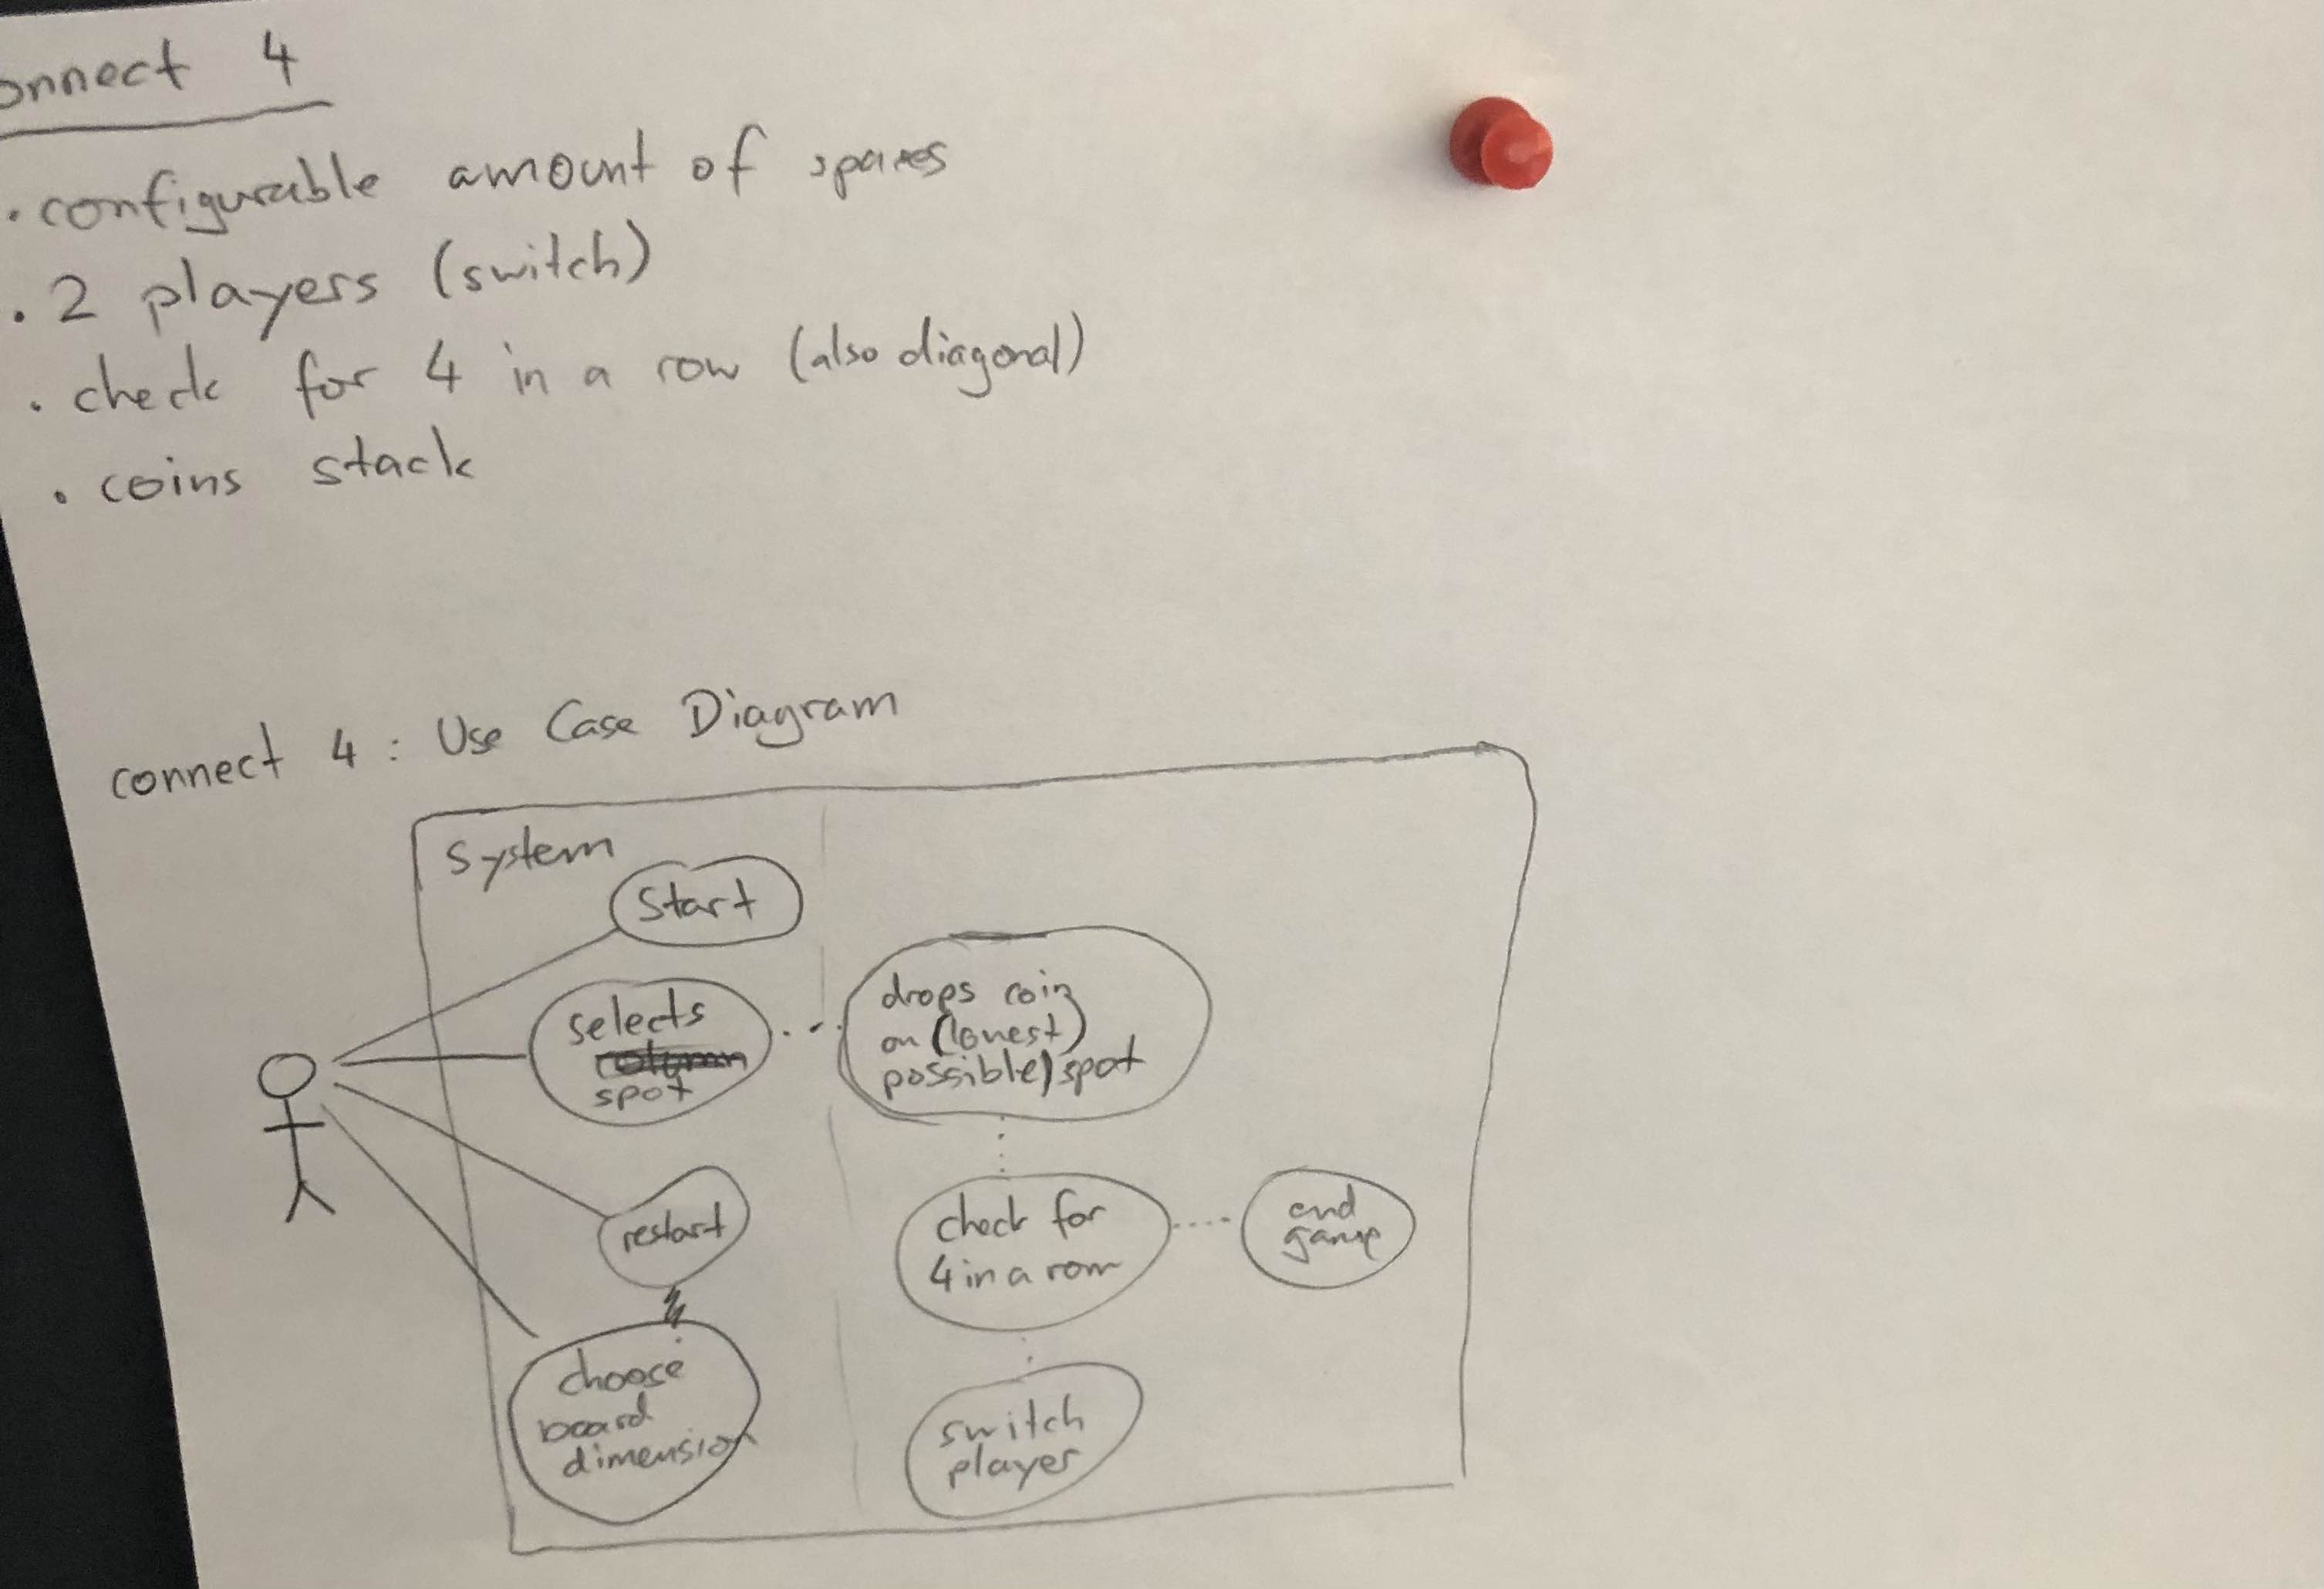 onnect 4
· configurable amount of spaces
· 2 players (switch)
· check for 4 in a row (also diagonal)
· coins stack
connect 4 : Use Case Diagram
System
Start
selects
column
spot
drops coin
on (lowest)
possible) spot
restart
check for
4 in a row
end
game
choose
board
dimension
switch
player